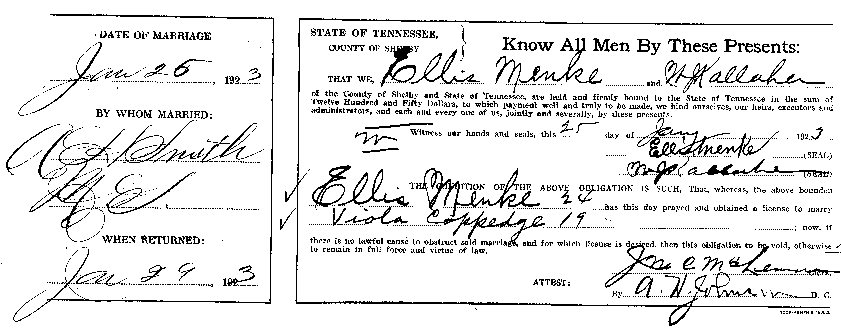 DATE OF MARRIAGE
Jan 25, 1923
BY WHOM MARRIED:
Smith
WHEN RETURNED:
Jan 29, 1923
STATE OF TENNESSEE,
COUNTY OF SHELBY
Know All Men By These Presents:
THAT WE, Ellis Menke and W J Kallaher
of the County of Shelby and State of Tennessee, are held and firmly bound to the State of Tennessee in the sum of
Twelve Hundred and Fifty Dollars, to which payment well and truly to be made, we bind ourselves, our heirs, executors and
administrators, and each and every one of us, jointly and severally, by these presents.
Witness our hands and seals, this 25 day of Jany 1923
Ellis Menke (SEAL)
W J Kallaher (SEAL)
THE CONDITION OF THE ABOVE OBLIGATION IS SUCH, That, whereas, the above bounden
Ellis Menke 24 has this day prayed and obtained a license to marry
Viola Coppedge 19 ; now, if
there is no lawful cause to obstruct said marriage, and for which license is desired, then this obligation to be void, otherwise
to remain in full force and virtue of law.
ATTEST:
By A. W. D. C.